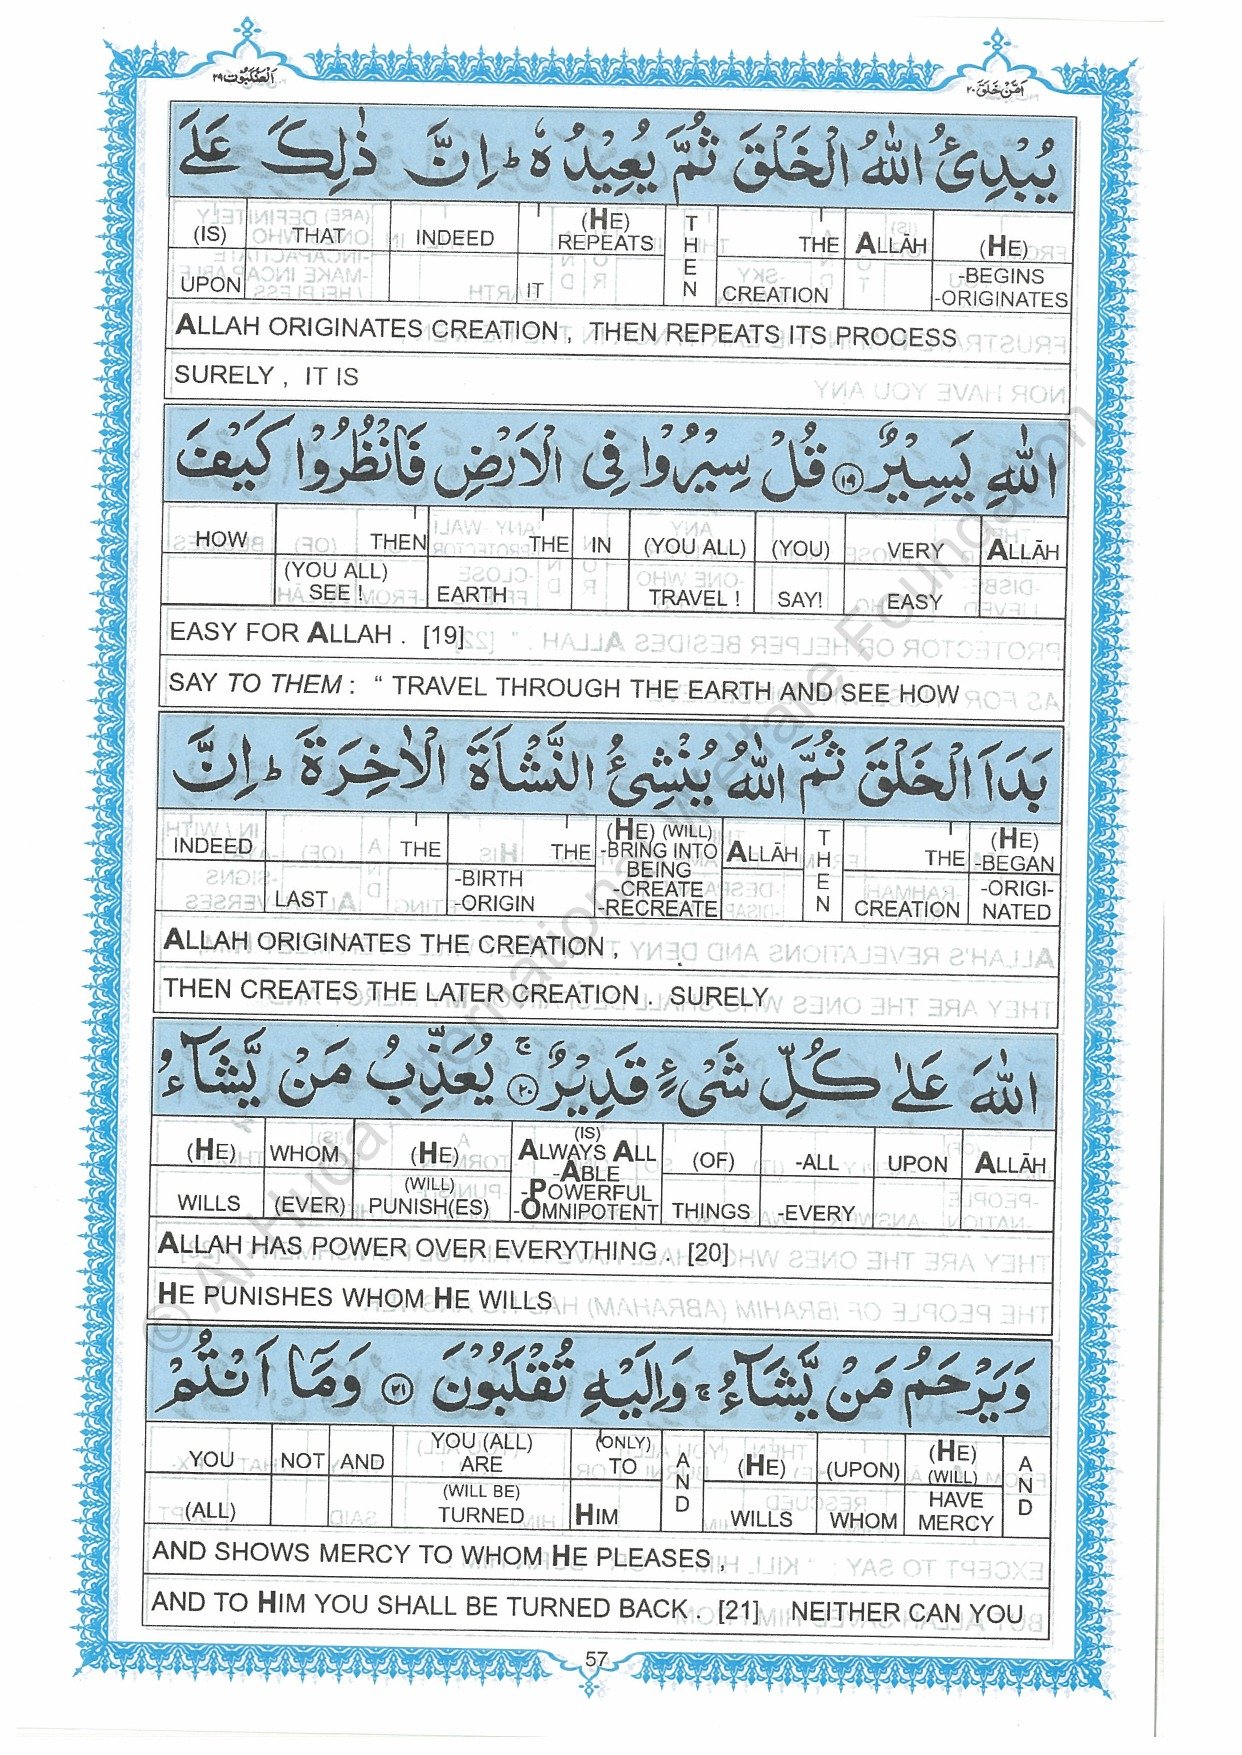 العنكبوت ٢٩
اَمَّنْ خَلَقَ ٢٠
يُبْدِئُ اللّٰهُ الْخَلْقَ ثُمَّ يُعِيْدُهٗ ؕ اِنَّ ذٰلِكَ عَلَى
(IS) THAT INDEED (HE) REPEATS THEN THE ALLĀH (HE)
UPON IT CREATION -BEGINS -ORIGINATES
ALLAH ORIGINATES CREATION , THEN REPEATS ITS PROCESS
SURELY , IT IS
اللّٰهِ يَسِيْرٌ ۝١٩ قُلْ سِيْرُوْا فِي الْاَرْضِ فَانْظُرُوْا كَيْفَ
HOW THEN THE IN (YOU ALL) (YOU) VERY ALLĀH
(YOU ALL) SEE ! EARTH TRAVEL ! SAY! EASY
EASY FOR ALLAH . [19]
SAY TO THEM : “ TRAVEL THROUGH THE EARTH AND SEE HOW
بَدَاَ الْخَلْقَ ثُمَّ اللّٰهُ يُنْشِئُ النَّشْاَةَ الْاٰخِرَةَ ؕ اِنَّ
INDEED THE THE (HE) (WILL) -BRING INTO BEING -CREATE -RECREATE ALLĀH THEN THE (HE) -BEGAN
LAST -BIRTH -ORIGIN CREATION -ORIGI- NATED
ALLAH ORIGINATES THE CREATION ,
THEN CREATES THE LATER CREATION . SURELY
اللّٰهَ عَلٰى كُلِّ شَيْءٍ قَدِيْرٌ ۚ۝٢٠ يُعَذِّبُ مَنْ يَّشَآءُ
(HE) WHOM (HE) (IS) ALWAYS ALL -ABLE -POWERFUL -OMNIPOTENT (OF) -ALL UPON ALLĀH
WILLS (EVER) (WILL) PUNISH(ES) THINGS -EVERY
ALLAH HAS POWER OVER EVERYTHING . [20]
HE PUNISHES WHOM HE WILLS
وَيَرْحَمُ مَنْ يَّشَآءُ ۚ وَاِلَيْهِ تُقْلَبُوْنَ ۝٢١ وَمَآ اَنْتُمْ
YOU NOT AND YOU (ALL) ARE (ONLY) TO AND (HE) (UPON) (HE) (WILL) AND
(ALL) (WILL BE) TURNED HIM WILLS WHOM HAVE MERCY
AND SHOWS MERCY TO WHOM HE PLEASES ,
AND TO HIM YOU SHALL BE TURNED BACK . [21] NEITHER CAN YOU
57
© Al-Huda International Welfare Foundation